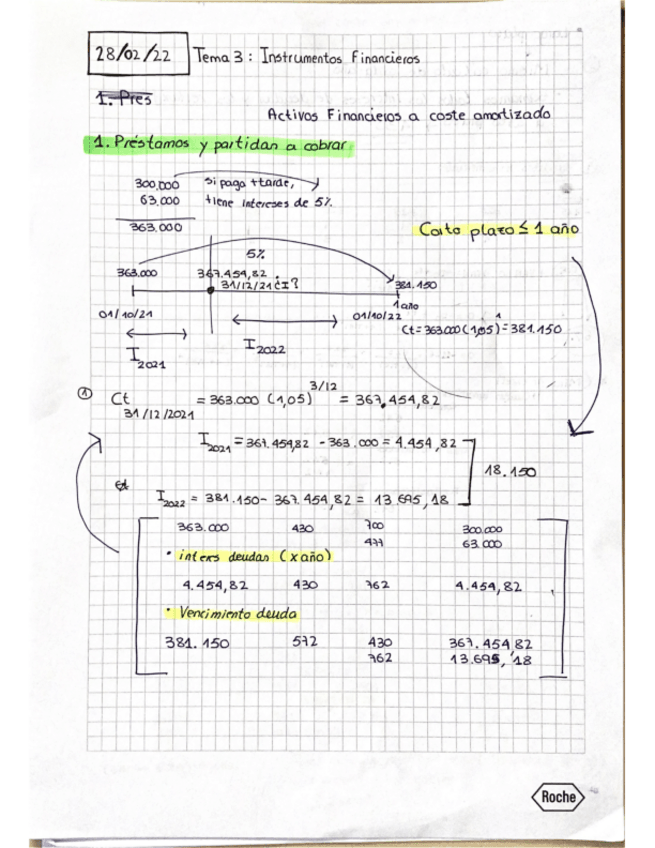 28/02/22 Tema 3: Instrumentos Financieros
1. Pres
Activos Financieros a coste amortizado
1. Préstamos y partidan a cobrar
300.000 si paga +tarde,
63.000 tiene intereses de 5%.
363.000
Corto plazo ≤ 1 año
5%
363.000 367.459,82 381.150
31/12/21 ¿I?
1 año
01/10/21 01/10/22
Ct = 363.000 (1,05)^1 = 381.150
I2021 I2022
① Ct 31/12/2021 = 363.000 (1,05)^3/12 = 367.454,82
I2021 = 367.459,82 - 363.000 = 4.454,82
18.150
I2022 = 381.150 - 367.454,82 = 13.695,18
363.000 430 700 300.000
477 63.000
• inters deudan (x año)
4.454,82 430 762 4.454,82
• Vencimiento deuda
381.150 572 430 367.454,82
762 13.695,18
Roche